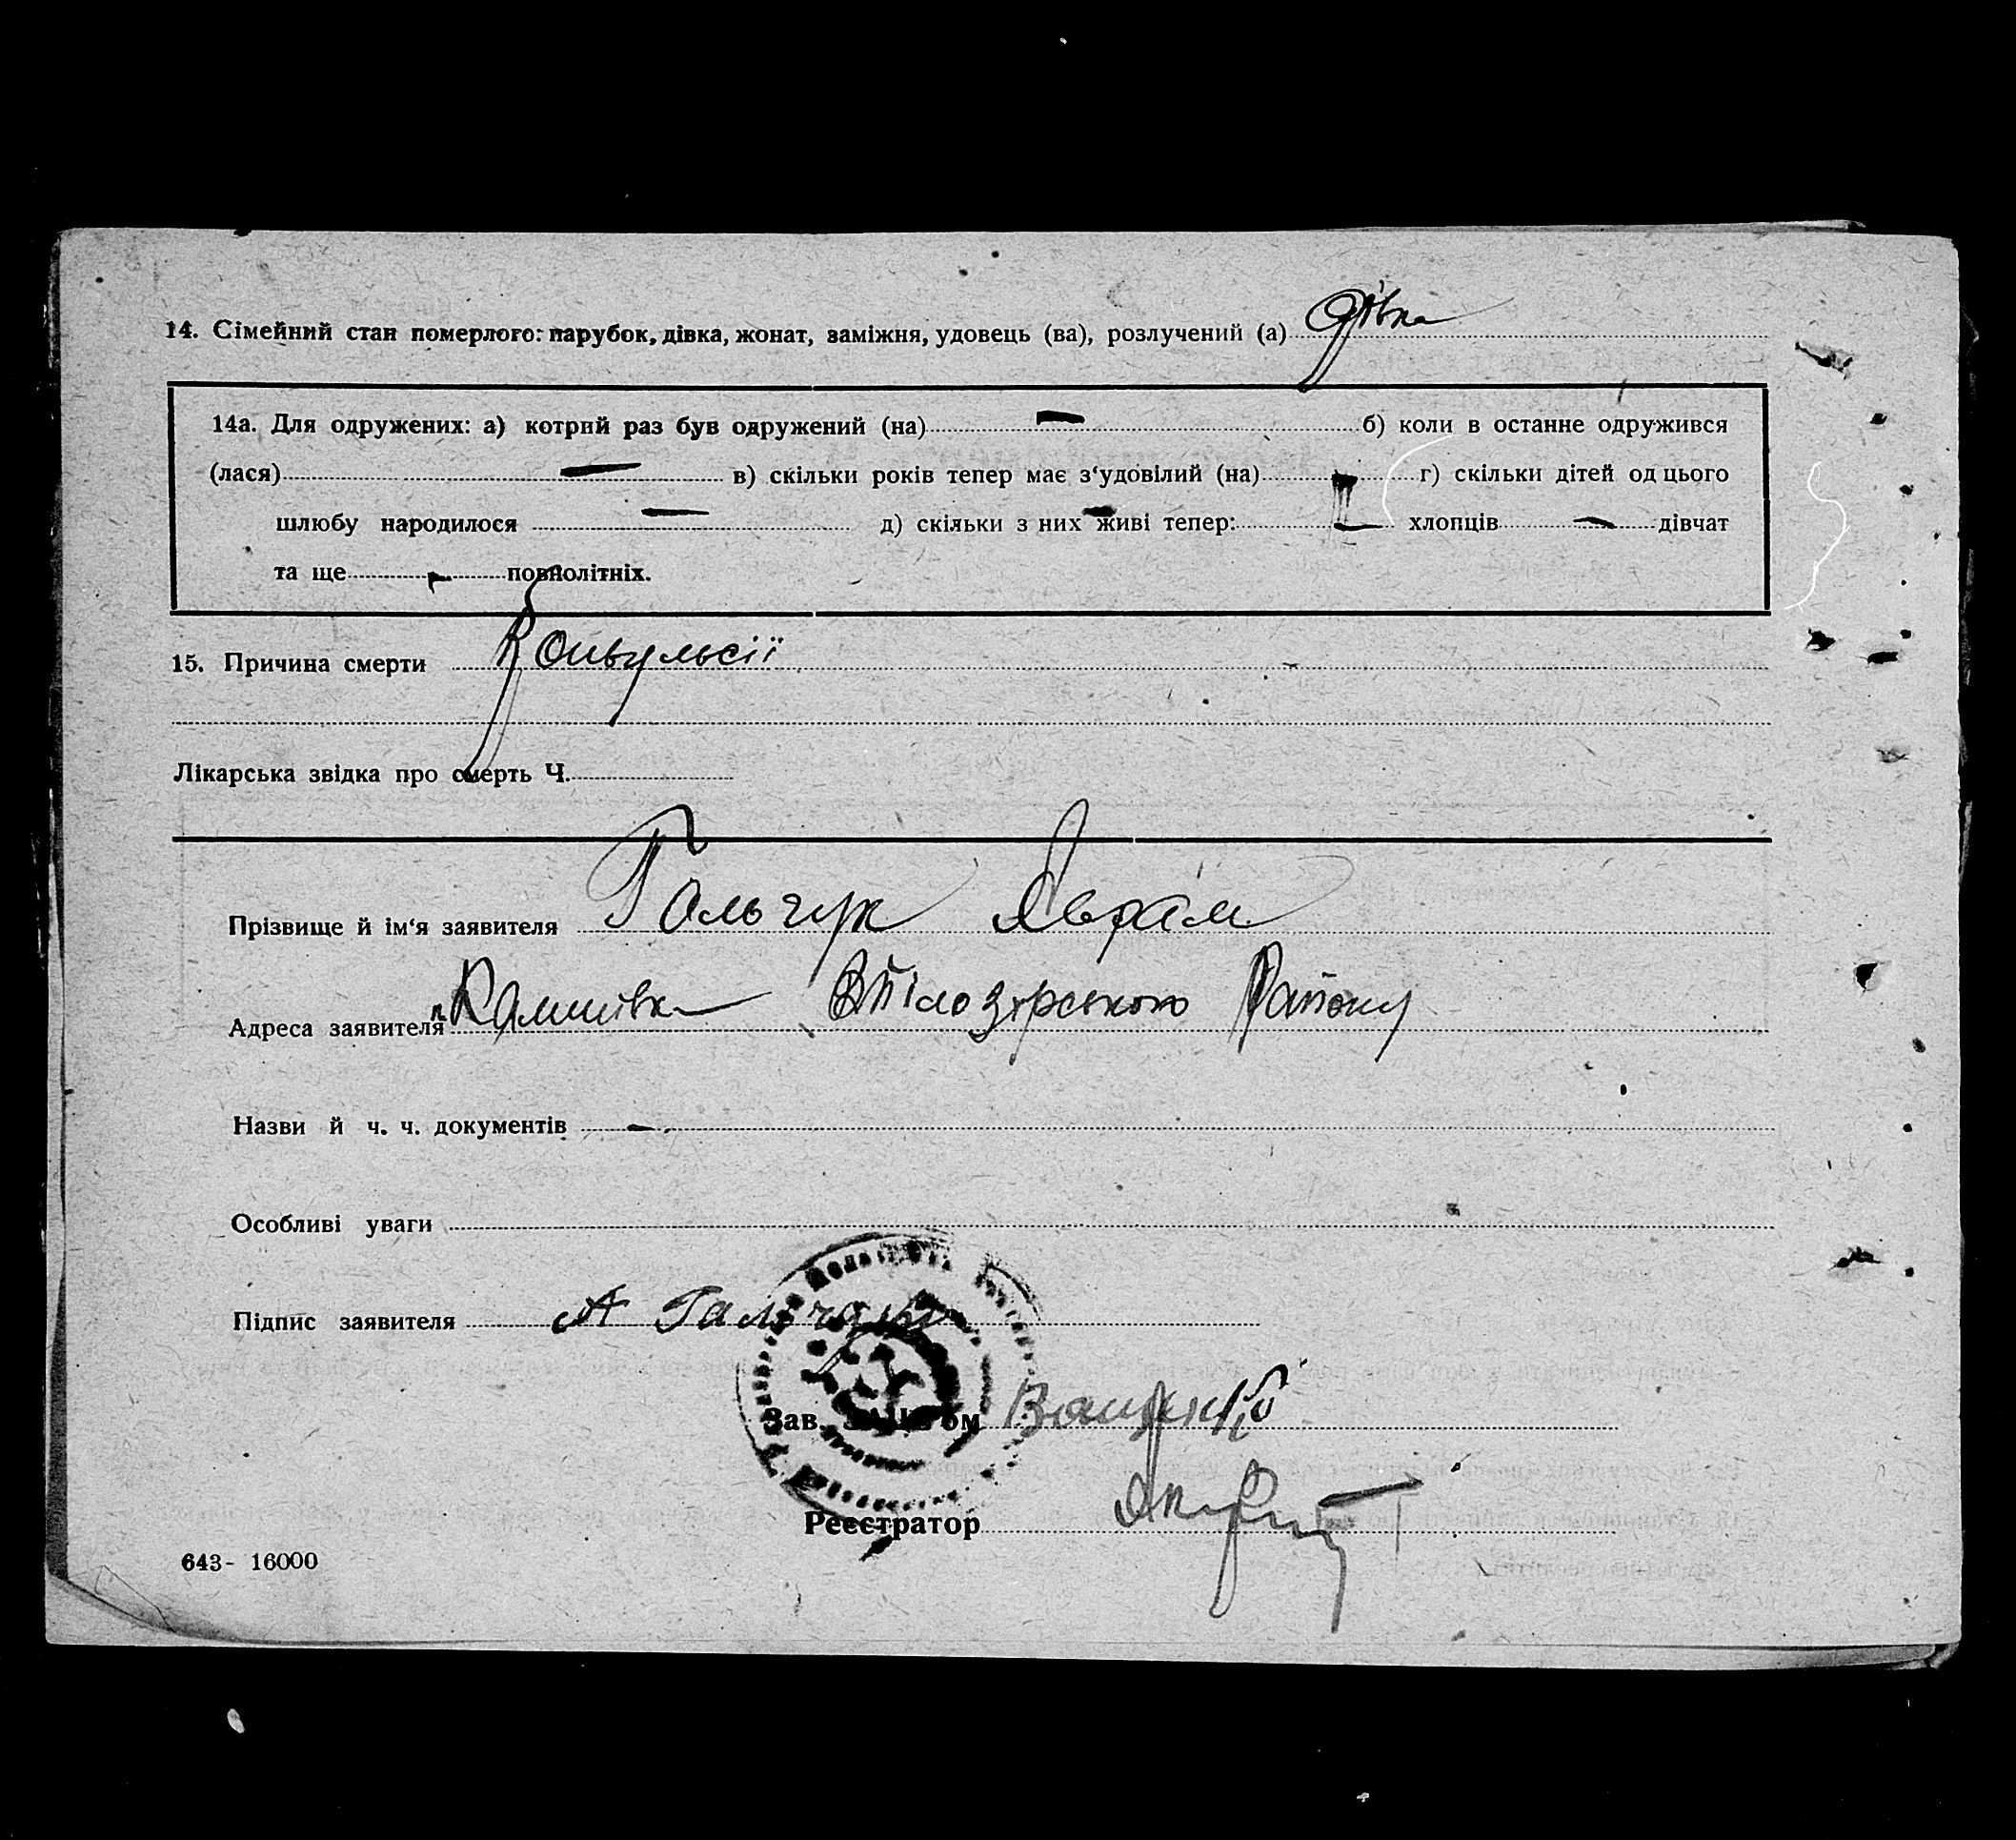 14. Сімейний стан померлого: парубок, дівка, жонат, заміжня, удовець (ва), розлучений (а) дівка
14а. Для одружених: а) котрий раз був одружений (на) — б) коли в останне одружився
(лася) — в) скільки років тепер має з'удовілий (на) г) скільки дітей од цього
шлюбу народилося — д) скільки з них живі тепер: — хлопців — дівчат
та ще — повнолітніх.
15. Причина смерти Конвульсії
Лікарська звідка про смерть Ч.
Прізвище й ім'я заявителя Гальчук Аврам
Адреса заявителя Району
Назви й ч. ч. документів —
Особливі уваги
Підпис заявителя А Гальчук
Зав.
Реєстратор
643- 16000